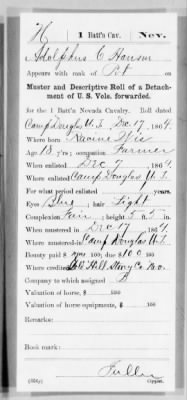 H 1 Batt'n Cav. Nev.
Adolphus C Hanson
Appears with rank of Pvt on
Muster and Descriptive Roll of a Detachment of U. S. Vols. forwarded.
for the 1 Batt'n Nevada Cavalry. Roll dated
Camp Douglas U. T. Dec 17, 1864.
Where born Racine Wis
Age 18 y'rs; occupation Farmer
When enlisted Dec 7, 1864.
Where enlisted Camp Douglas U. T.
For what period enlisted years.
Eyes Blue; hair Light
Complexion Fair; height 5 ft. 5 in.
When mustered in Dec 17, 1864.
Where mustered in Camp Douglas U. T.
Bounty paid $ 100; due $ 100 100
Where credited
Company to which assigned
Valuation of horse, $ 100
Valuation of horse equipments, $ 100
Remarks:
Book mark:
Fuller
(336g) Copyist.